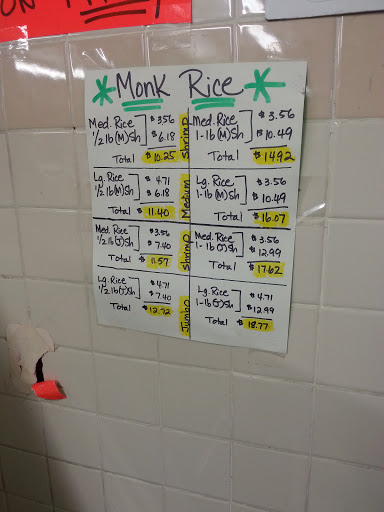 ON
*Monk Rice*
Med. Rice $3.56
1/2 lb(M)Sh $6.18
Total $10.25
Lg. Rice $4.71
1/2 lb(M)Sh $6.18
Total $11.40
Med. Rice $3.56
1/2 lb(J)Sh $7.40
Total $11.57
Lg. Rice $4.71
1/2 lb(J)Sh $7.40
Total $12.72
Medium Shrimp
Jumbo Shrimp
Med. Rice $3.56
1-1lb(M)Sh $10.49
Total $14.92
Lg. Rice $3.56
1-1lb(M)Sh $10.49
Total $16.07
Med. Rice $3.56
1-1lb(J)Sh $12.99
Total $17.62
Lg. Rice $4.71
1-1lb(J)Sh $12.99
Total $18.77